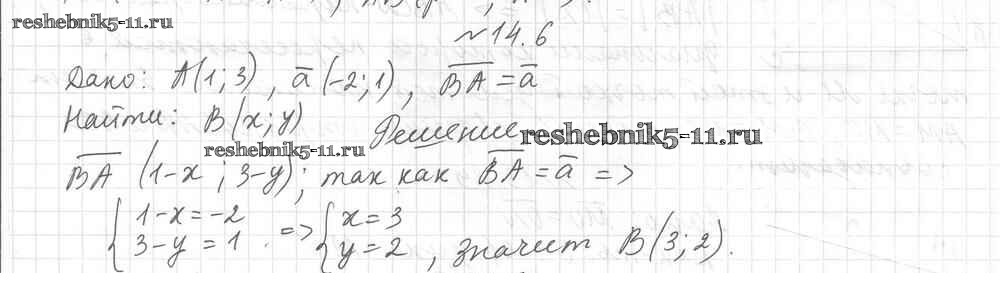 reshebnik5-11.ru
№ 14.6
Дано: A(1;3), a̅(-2;1), B̅A̅ = a̅
Найти: B(x;y)
Решение reshebnik5-11.ru
reshebnik5-11.ru
B̅A̅ (1-x; 3-y); так как B̅A̅ = a̅ =>
{ 1-x=-2 => { x=3
3-y=1 y=2, значит B(3;2).